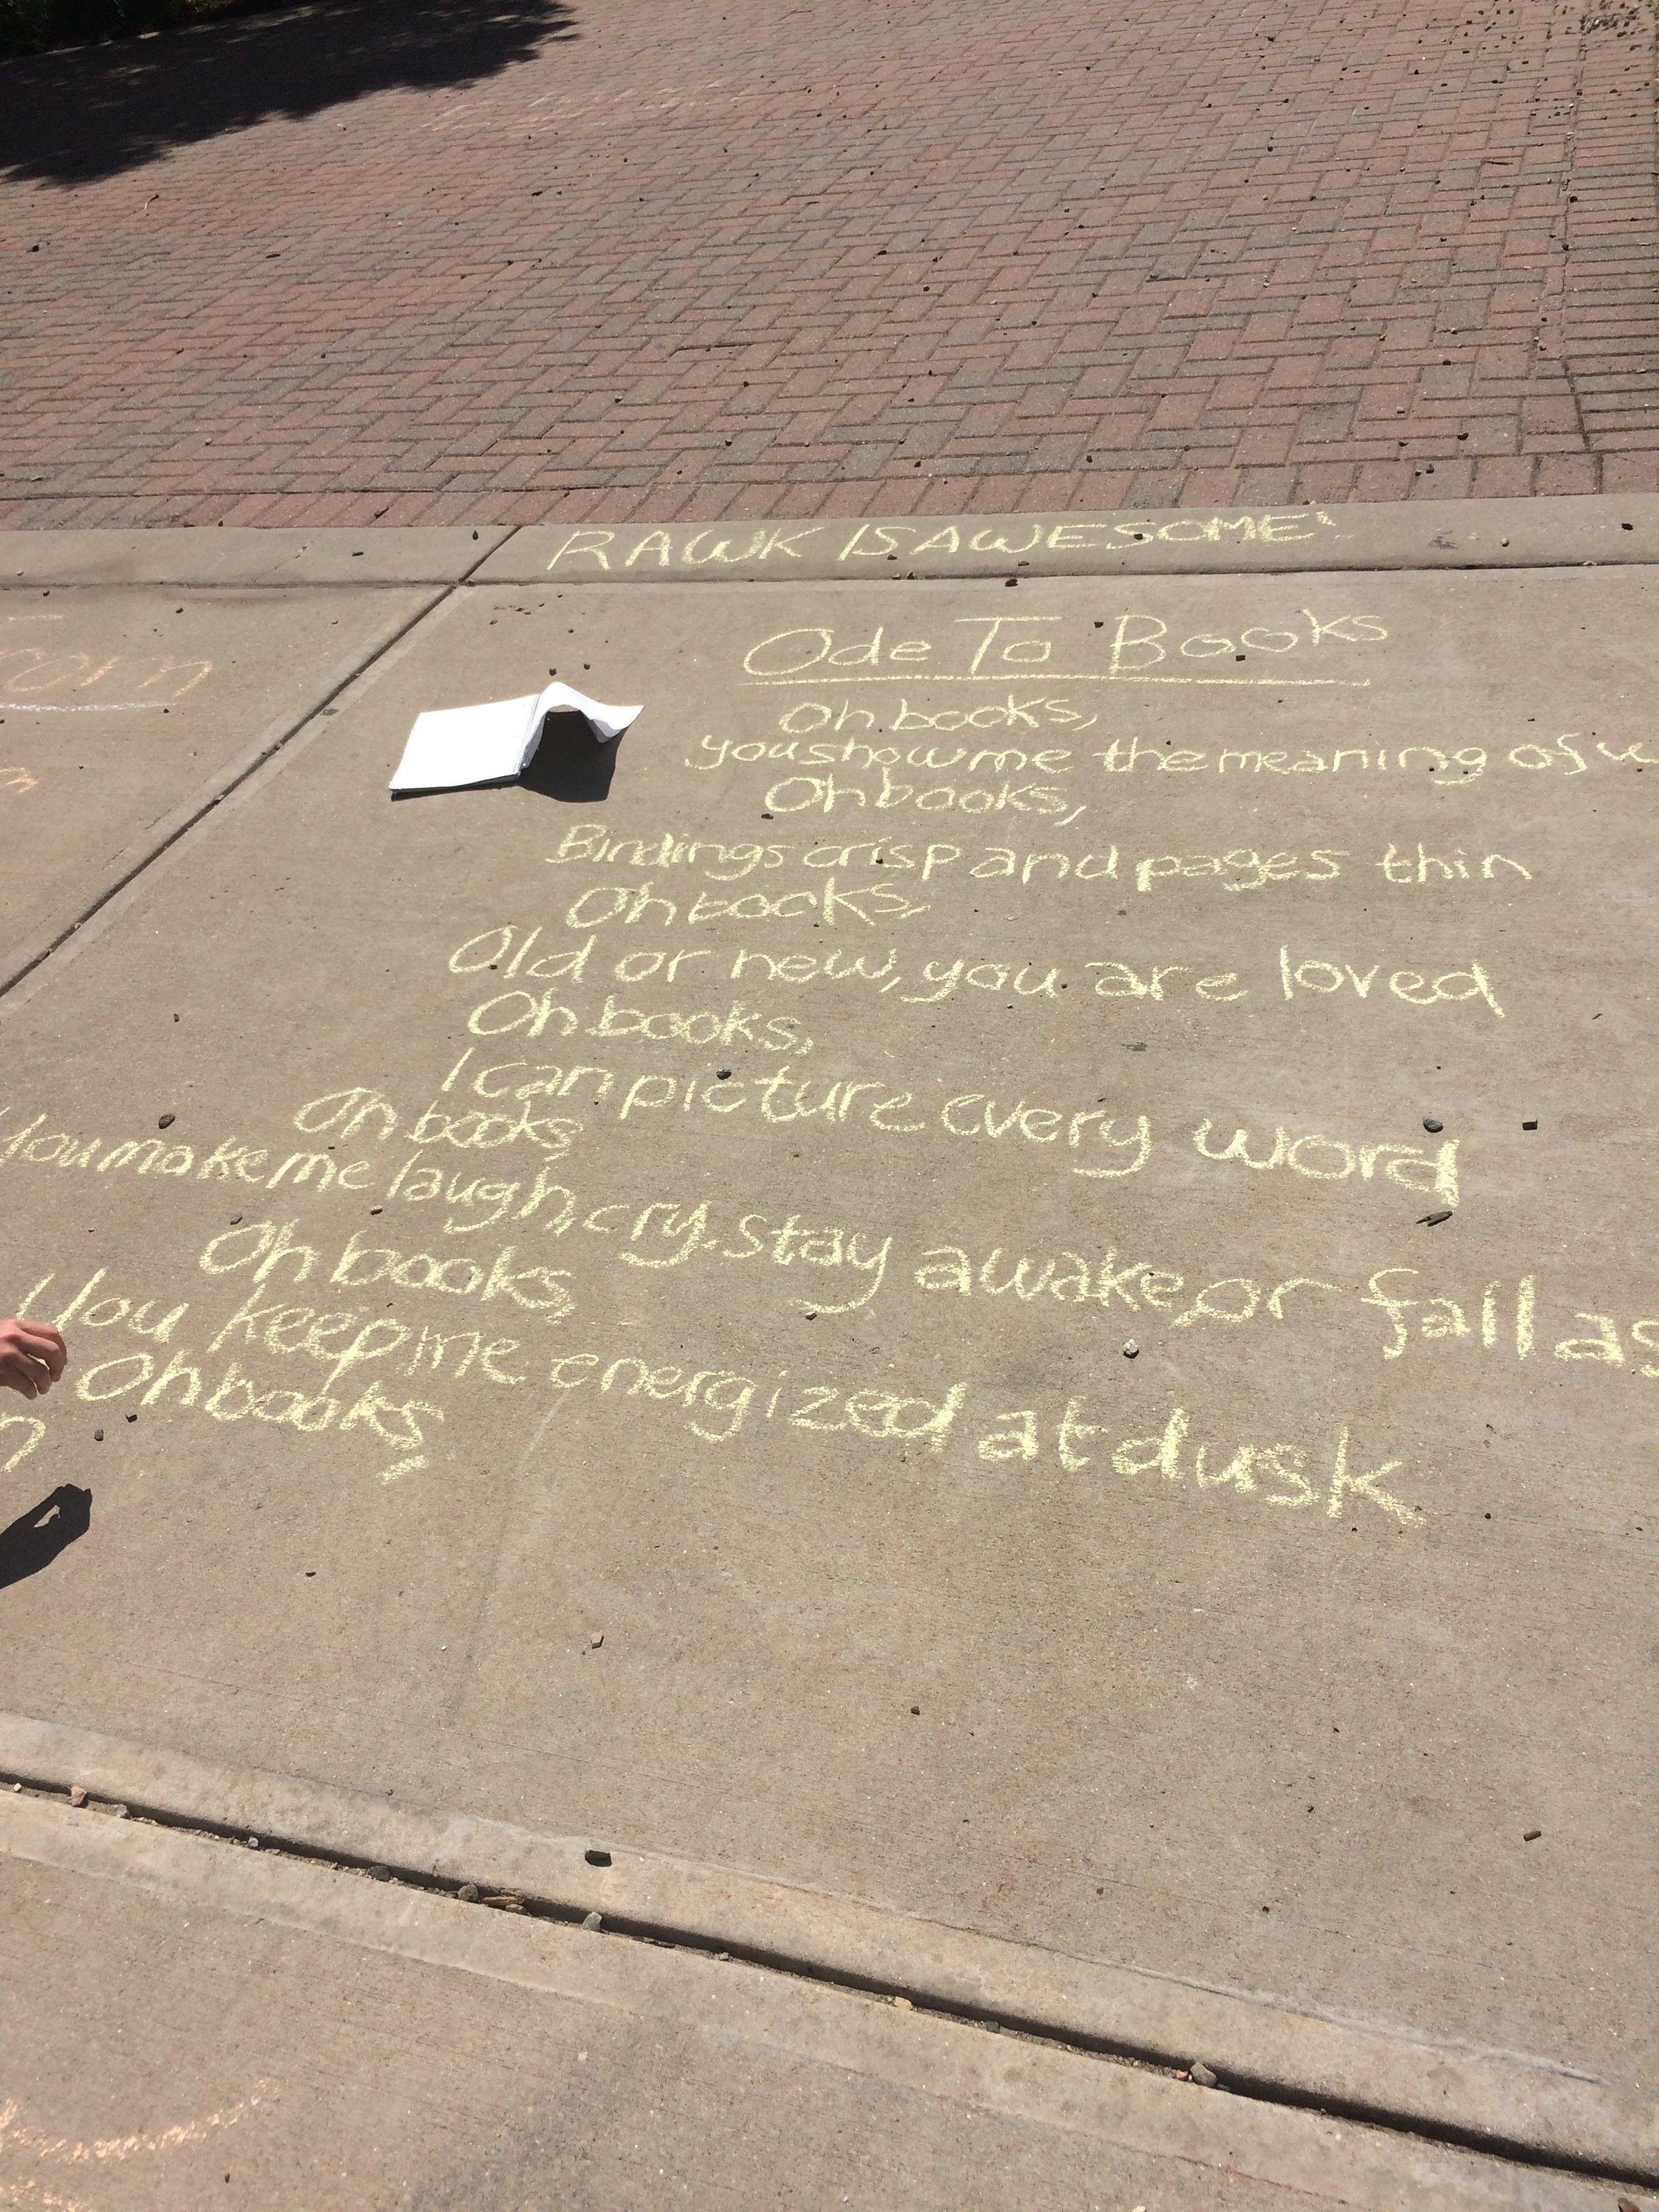 RAWK IS AWESOME!
Ode To Books
Oh books,
you show me the meaning of
Oh books,
Bindings crisp and pages thin
Oh books,
Old or new, you are loved
Oh books,
I can picture every word
Oh books,
You make me laugh, cry, stay awake, or fall as
Oh books,
You keep me energized at dusk
Oh books,